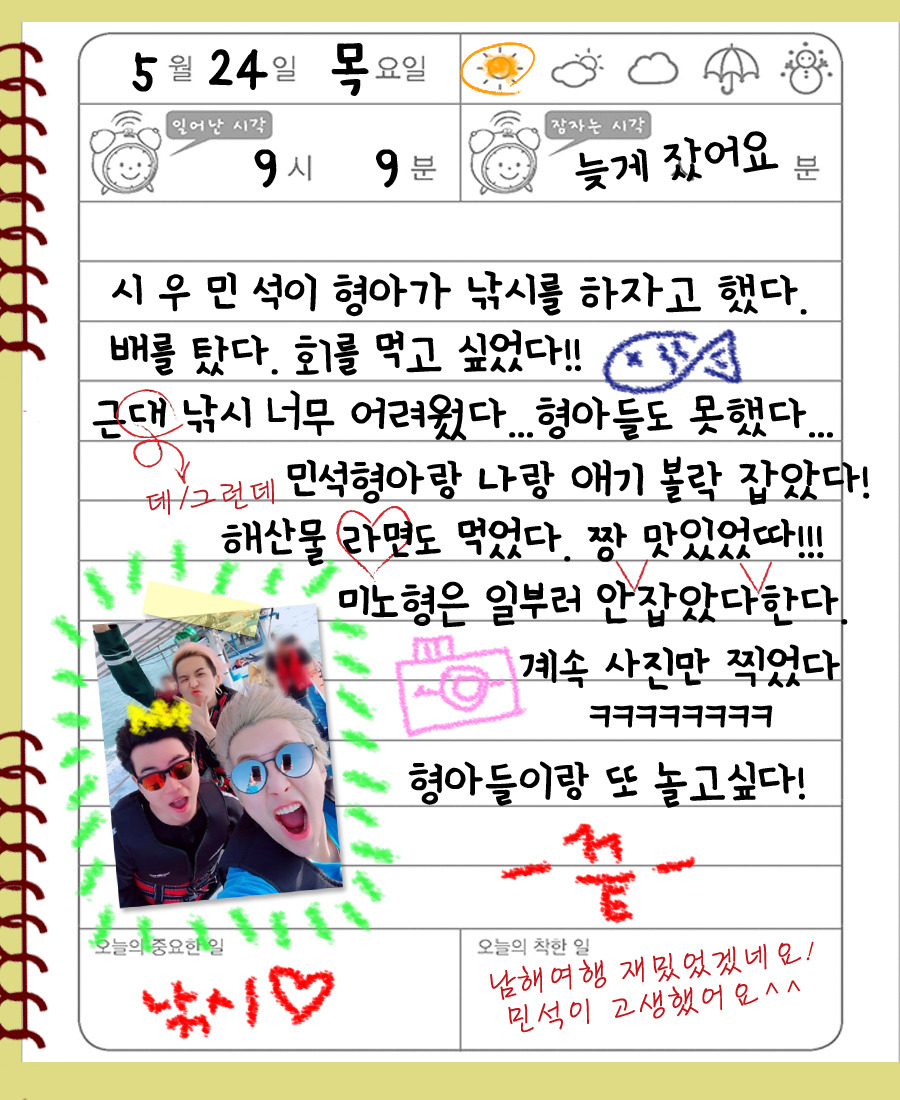 5 월 24 일 목 요일
일어난 시각
9 시 9 분
잠자는 시각
늦게 잤어요 분
시 우 민 석이 형아가 낚시를 하자고 했다.
배를 탔다. 회를 먹고 싶었다!!
근대 낚시 너무 어려웠다...형아들도 못했다...
데/그런데
민석형아랑 나랑 애기 볼락 잡았다!
해산물 라면도 먹었다. 짱 맛있었따!!!
미노형은 일부러 안잡았다한다.
계속 사진만 찍었다
ㅋㅋㅋㅋㅋㅋㅋㅋ
형아들이랑 또 놀고싶다!
-끝-
오늘의 중요한 일
낚시♡
오늘의 착한 일
남해여행 재밌었겠네요!
민석이 고생했어요^^